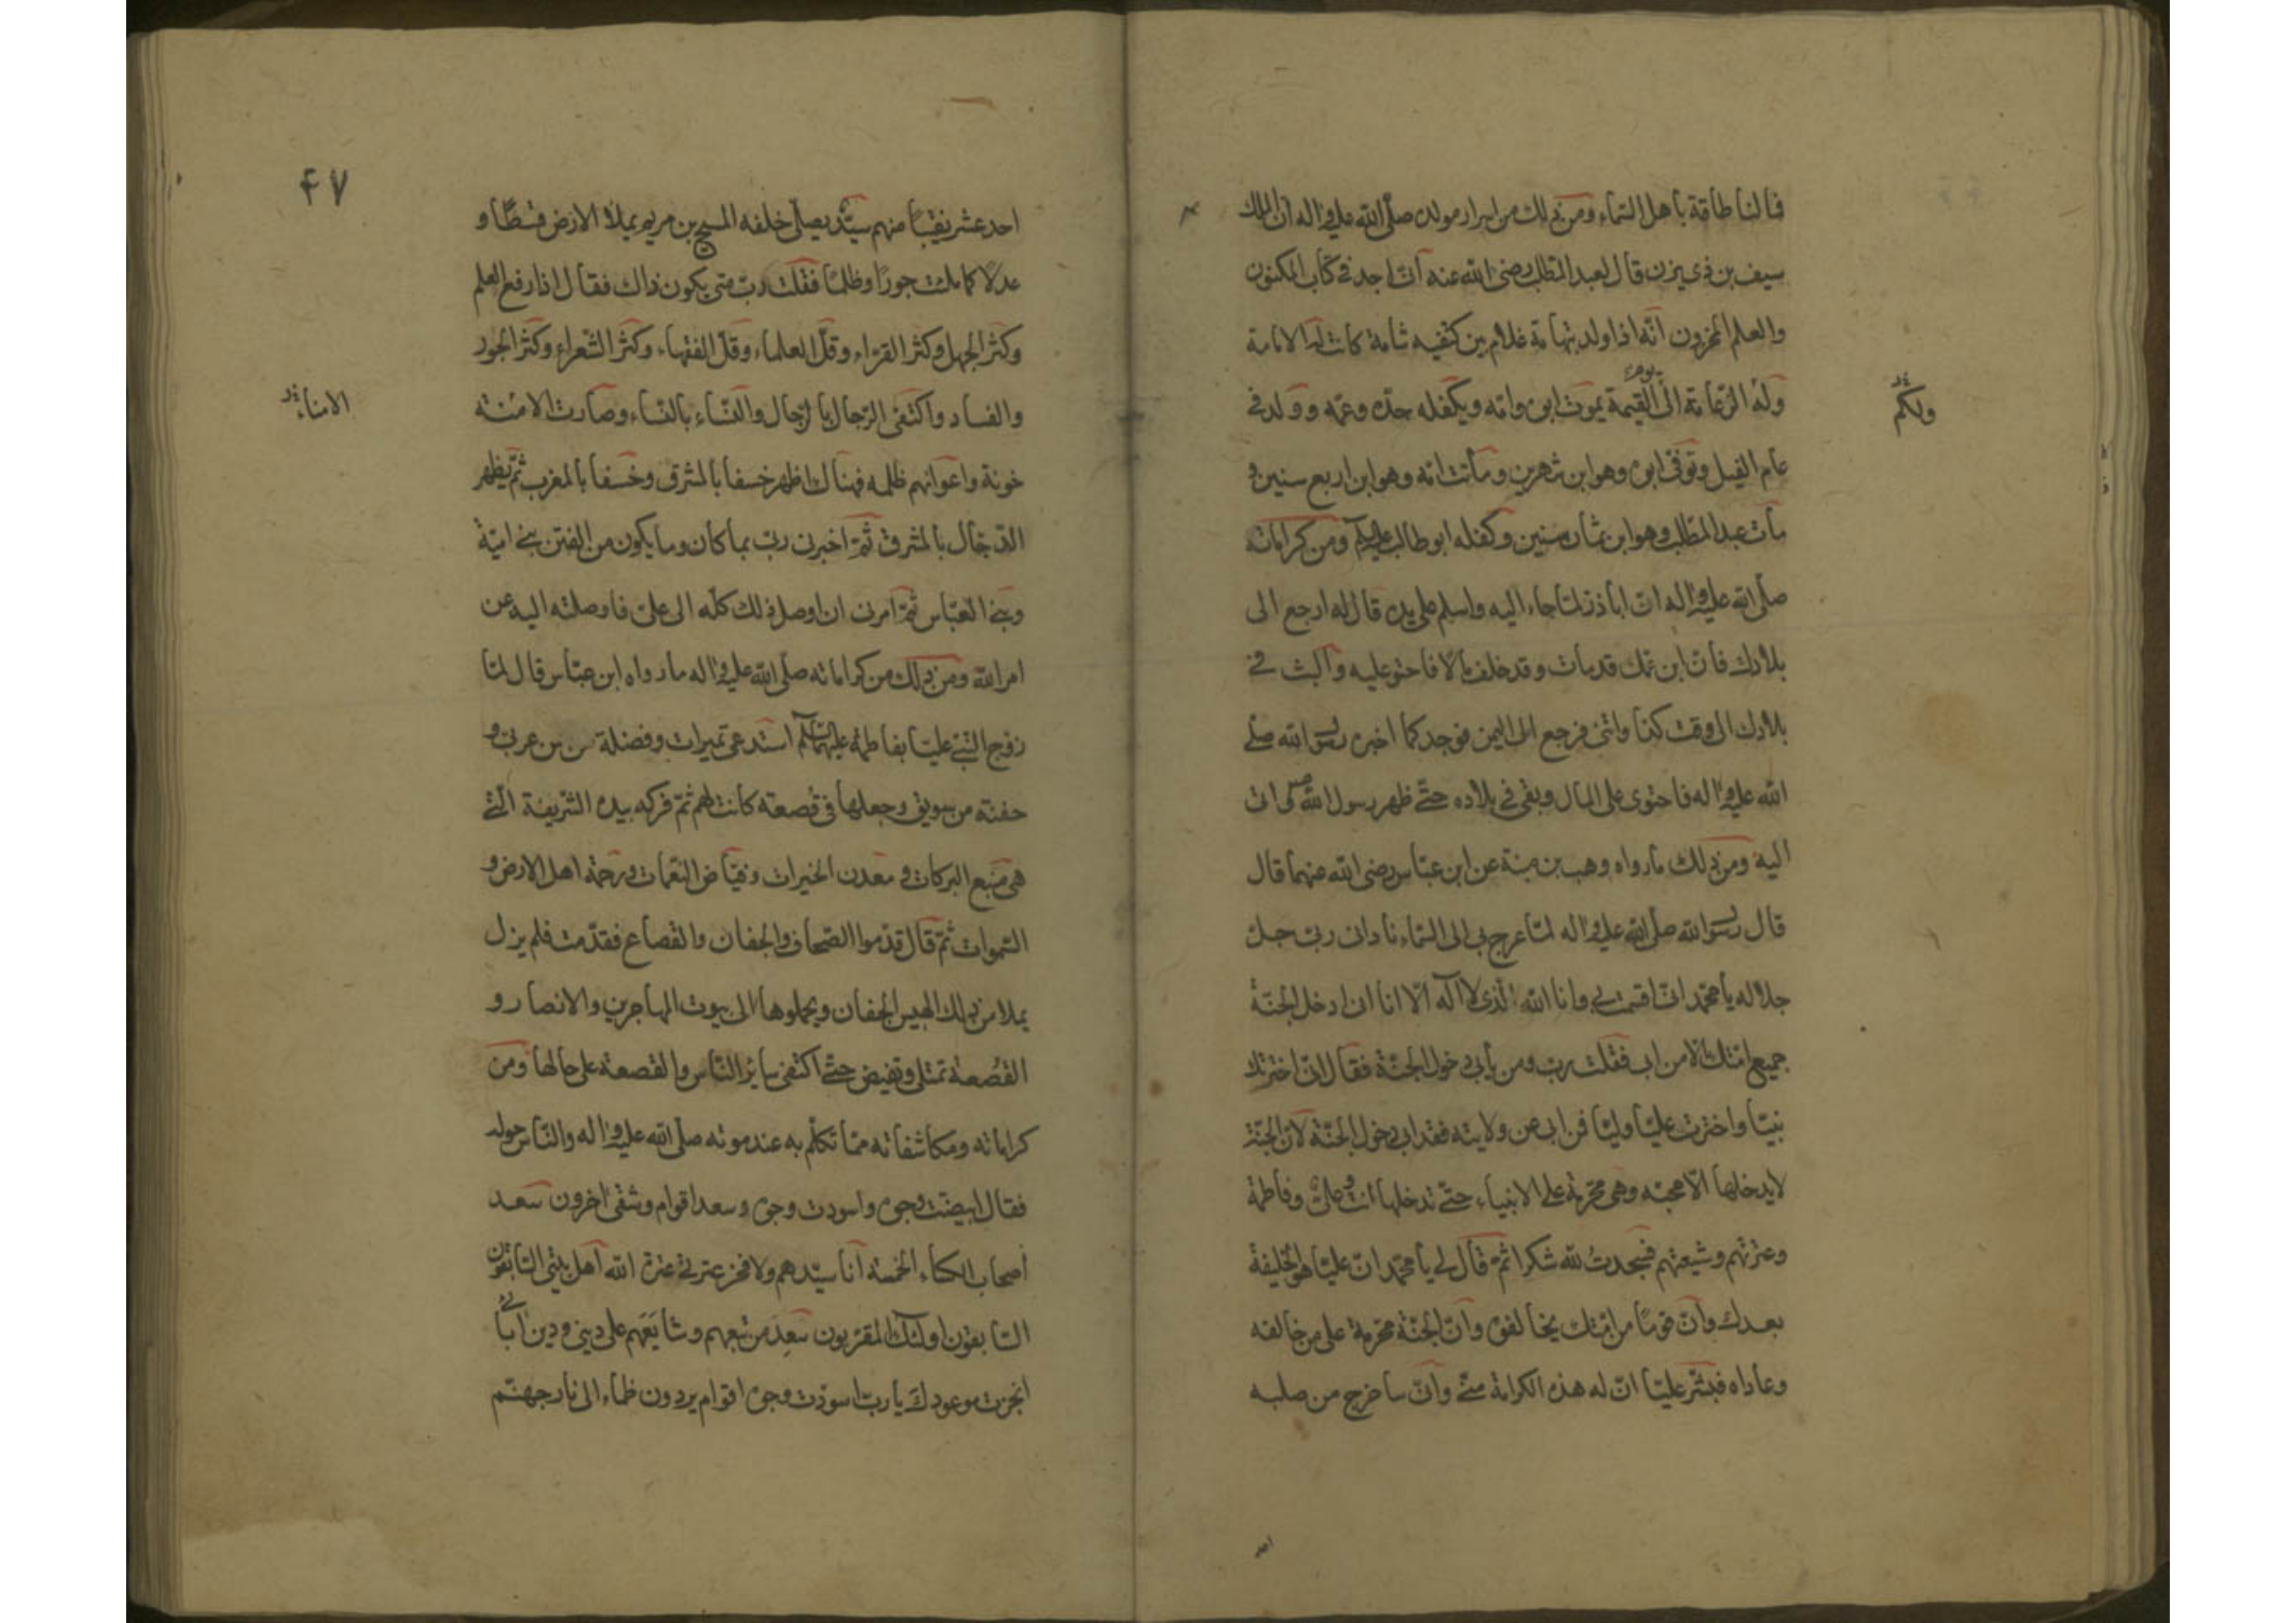 فما لنا طاقة باهل السّماء ومن ذلك من اسرار مولده صلّى الله عليه واله ان الملك
سيف بن ذي يزن قال لعبد المطلب رضى الله عنه انّى اجد في كتاب المكنون
والعلم المخزون انّه اذا ولد بتهامة غلام بين كتفيه شامة كانت له الامامة
وله الزعامة الى يوم القيمة يموت ابوه وامّه ويكفله جدّه وعمّه وولد في
ولكم
عام الفيل وتوفّى ابوه وهو ابن شهرين وماتت امّه وهو ابن اربع سنين و
مات عبد المطّلب وهو ابن ثمان سنين وكفله ابو طالب عليه السلام ومن كراماته
صلّى الله عليه واله انّ اباذر لمّا جاء اليه واسلم على يده قال له ارجع الى
بلادك فانّ ابن عمّك قد مات وقد خلف مالا فاحتو عليه والبث في
بلادك الى وقت كذا وائتنى فرجع الى اليمن فوجد كما اخبره رسول الله صلّى
الله عليه واله فاحتوى على المال وبقى في بلاده حتّى ظهر رسول الله ص اتى
اليه ومن ذلك مارواه وهب بن منبّه عن ابن عبّاس رضى الله عنهما قال
قال رسول الله صلّى الله عليه واله لمّا عرج بى الى السّماء نادانى ربّى جلّ
جلاله يا محمّد انّى اقسمت بى وانا الله الّذى لا اله الّا انا انى ادخل الجنّة
جميع امّتك الّا من ابى فقلت ربّ ومن يأبى دخول الجنّة فقال انّى اخترتك
نبيّا واخترت عليّا وليّا فمن ابى عن ولايته فقد ابى دخول الجنّة لانّ الجنّة
لا يدخلها الّا محبّه وهى محرّمة على الانبياء حتّى تدخلها انت وعلىّ وفاطمة
وعترتهم وشيعتهم فسجدتُ لله شكرا ثمّ قال لى يا محمّد انّ عليّا هو الخليفة
بعدك وانّ قومًا من امّتك يخالفونه وانّ الجنّة محرّمة على من خالفه
وعاداه فبشّر عليّا انّ له هذه الكرامة منّى وانّى ساخرج من صلبه
احد
۴۷
احد عشر نقيبًا منهم سيّد يصلّى خلفه المسيح بن مريم يملأ الارض قسطًا و
عدلًا كما ملئت جورًا وظلمًا فقلت ربّ متى يكون ذلك فقال اذا رفع العلم
وكثر الجهل وكثر القرّاء وقلّ العلماء وقلّ الفقهاء وكثر الشّعراء وكثر الجور
والفساد واكتفى الرّجال بالرّجال والنّساء بالنّساء وصارت الامنته
الامناء
خونة واعوانهم ظلمه فهناك اظهر خسفا بالمشرق وخسفا بالمغرب ثمّ يظهر
الدّجّال بالمشرق ثمّ اخبرنى ربّى بما كان وما يكون من الفتن بنى اميّة
وبنى العبّاس ثمّ امرنى ان اوصل ذلك كلّه الى علىّ فاوصلته اليه عن
امر الله ومن ذلك من كراماته صلّى الله عليه واله مارواه ابن عبّاس قال لمّا
زوج النّبى عليّا بفاطمة عليهما السّلام استدعى تميرات وفضلة من سمن عربى و
حفنته من سويق وجعلها في قصعة كانت لهم ثمّ فركه بيده الشّريفة الّتى
هى منبع البركات ومعدن الخيرات وفيّاض النعمات ورحمة اهل الارض و
السّموات ثمّ قال قدّموا الصّحاف والجفان والقصاع فقدّمت فلم يزل
يملا من ذلك الهيس الجفان ويحملوها الى بيوت المهاجرين والانصار و
القصعة تمتلى وتفيض حتّى اكتفى سائر النّاس والقصعة على حالها ومن
كراماته ومكاشفاته ممّا تكلّم به عند موته صلّى الله عليه واله والنّاس حوله
فقال ابيضّت وجوه واسودت وجوه وسعد اقوام وشقى اخرون سعد
اصحاب الكساء الخمسة انا سيّدهم ولا فخر عترتى عترة الله اهل بيتى السّابقون
السّابقون اولئك المقرّبون سَعِد من تبعهم وشايَعَهم على دينى ودين ابائى
انجزت موعودك يا ربّ اسودّت وجوه اقوام يردون ظماء الى نار جهنّم